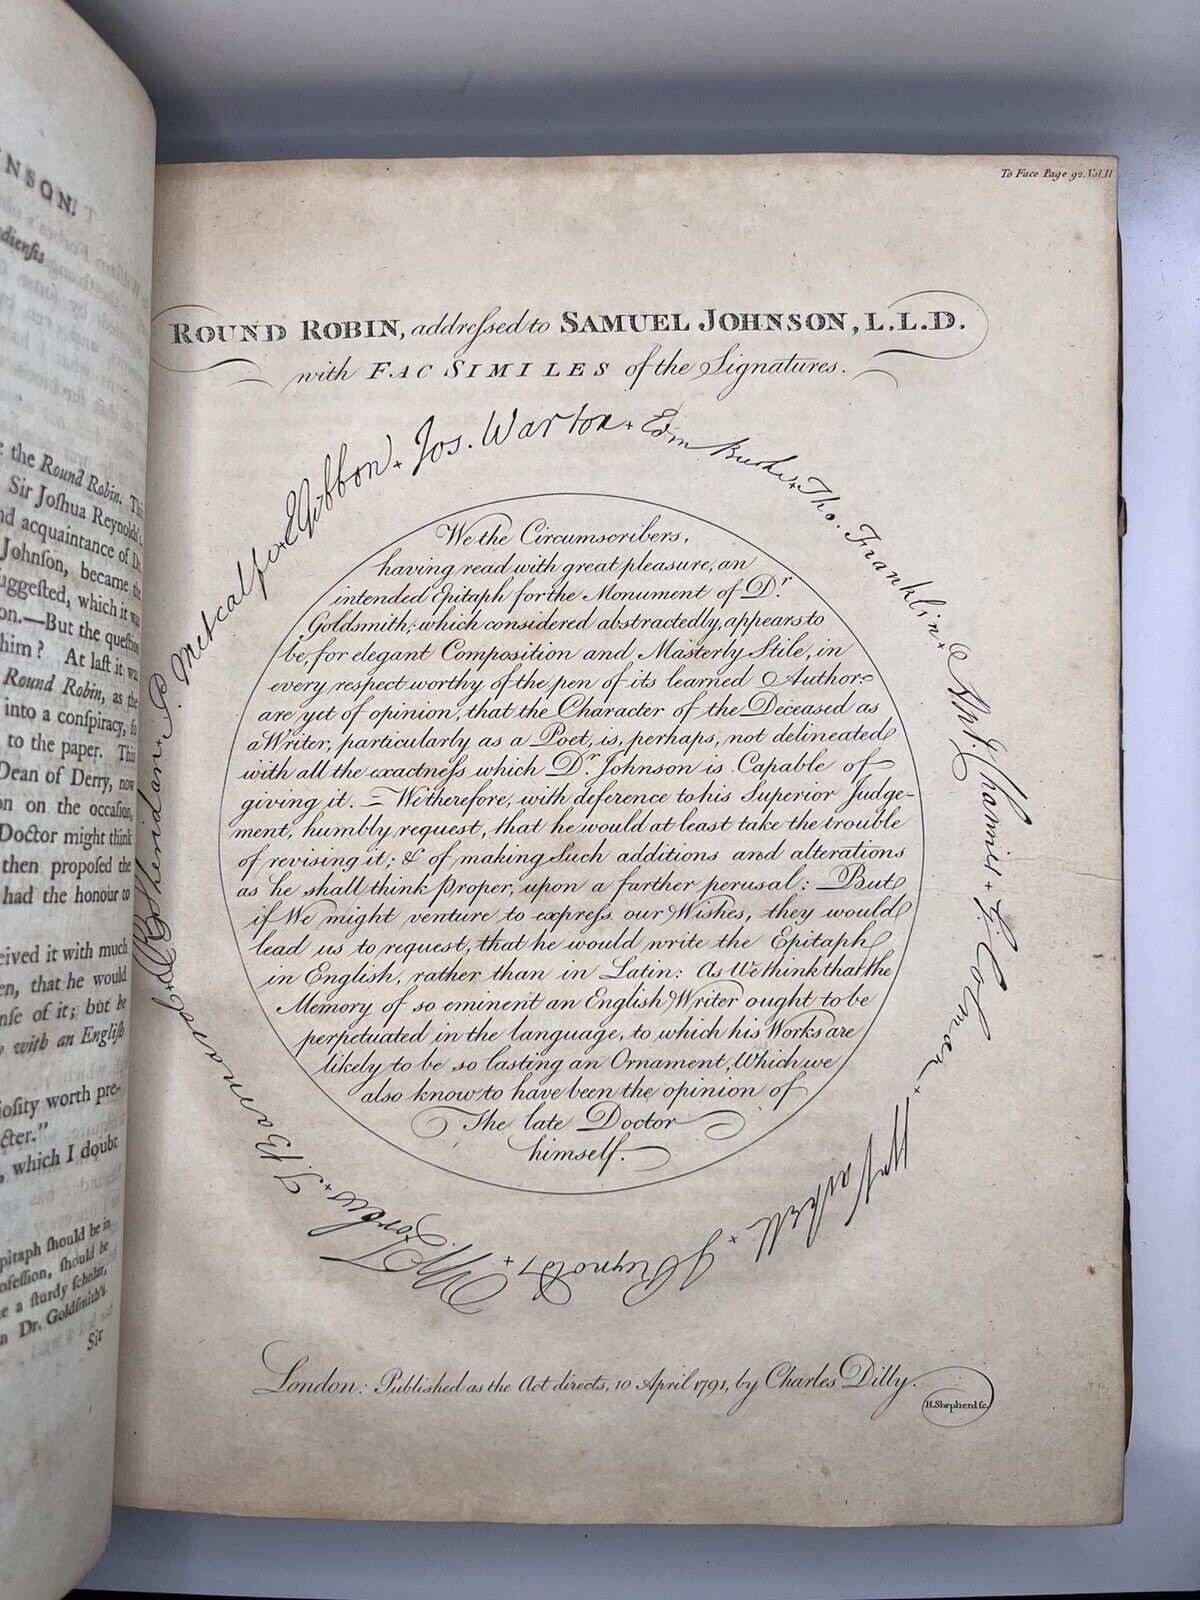 NSON.
dienſis
e the Round Robin. This
Sir Joſhua Reynolds's
nd acquaintance of Dr.
Johnſon, became the
ſuggeſted, which it was
on.—But the queſtion
him? At laſt it was
Round Robin, as the
into a conſpiracy, ſo
to the paper. This
Dean of Derry, now
on on the occaſion,
Doctor might think
then propoſed the
had the honour to
eived it with much
en, that he would
nſe of it; but he
with an Engliſh
ioſity worth pre-
cter."
, which I doubt
pitaph ſhould be in
ofeſſion, ſhould be
e a ſturdy ſcholar,
n Dr. Goldſmith's
Sir
To Face Page 92. Vol. II
ROUND ROBIN, addreſsed to SAMUEL JOHNSON, L.L.D.
with FAC SIMILES of the Signatures.
EGibbon + Jos. Warton + Edm Burke + Tho. Franklin +
Ant. Chamier + G. Colman +
Wm Vaſhell + J Reynolds +
W Forbes + T. Barnard +
RB Sheridan + P. Metcalfe +
We the Circumscribers,
having read with great pleasure, an
intended Epitaph for the Monument of Dr.
Goldsmith; which considered abstractedly, appears to
be, for elegant Composition and Masterly Stile, in
every respect worthy of the pen of its learned Author;
are yet of opinion, that the Character of the Deceased as
a Writer, particularly as a Poet, is, perhaps, not delineated
with all the exactneſs which Dr. Johnson is Capable of
giving it. — We therefore, with deference to his Superior Judge-
ment, humbly request, that he would at least take the trouble
of revising it; & of making Such additions and alterations
as he shall think proper, upon a farther perusal: But
if We might venture to expreſs our Wishes, they would
lead us to request, that he would write the Epitaph
in English, rather than in Latin: As We think that the
Memory of so eminent an English Writer ought to be
perpetuated in the language, to which his Works are
likely to be so lasting an Ornament, Which we
also know to have been the opinion of
The late Doctor
himself.
London: Published as the Act directs, 10 April 1791, by Charles Dilly.
H. Shepherd ſc.